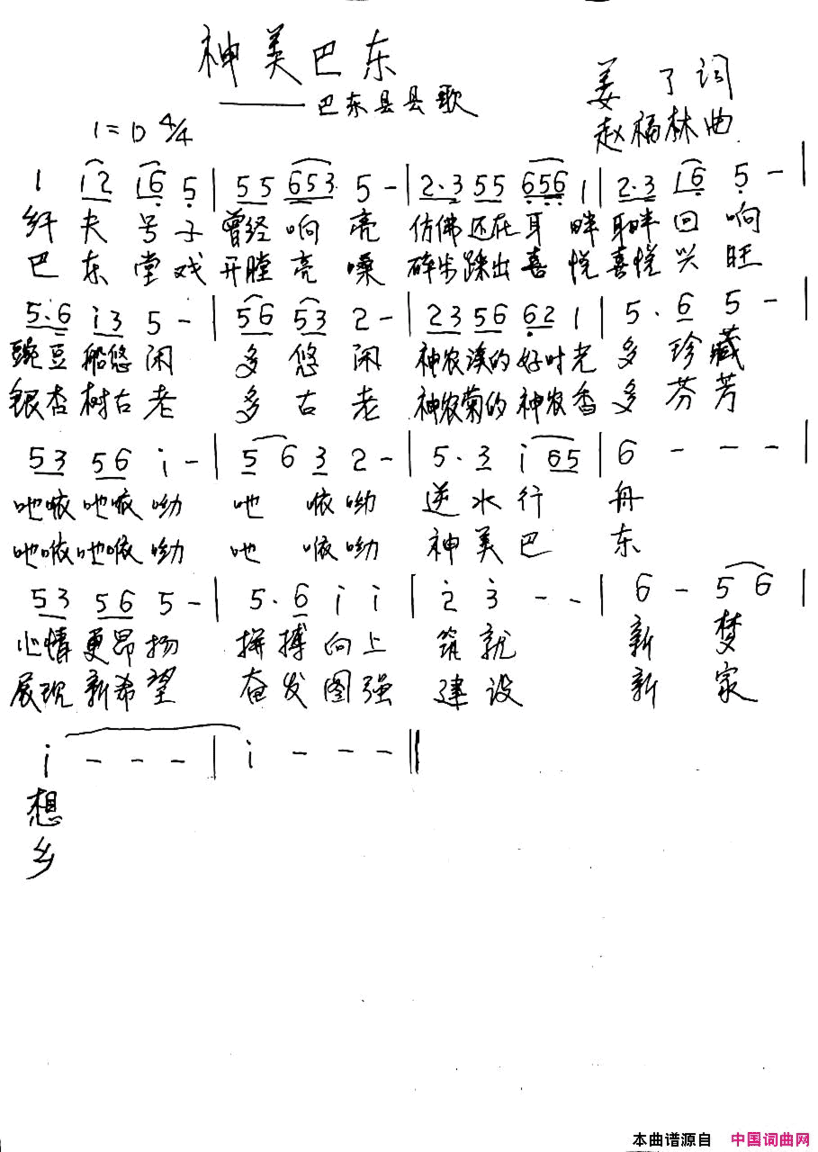 神美巴东
——巴东县县歌
姜了词
赵福林曲
1=D 4/4
1 12 16 5 | 55 653 5 - | 2·3 55 656 1 | 2·3 16 5 - |
纤夫号子曾经响亮 仿佛还在耳畔耳畔回响
巴东堂戏开膛亮嗓 碎步踩出喜悦喜悦兴旺
5·6 i3 5 - | 56 53 2 - | 23 56 62 1 | 5· 6 5 - |
豌豆船悠闲 多悠闲 神农溪的好时光多珍藏
银杏树古老 多古老 神农菊的神农香多芬芳
53 56 i - | 5 6 3 2 - | 5· 3 i 65 | 6 - - - |
吔喉吔喉呦 吔喉呦 逆水行舟
吔喉吔喉呦 吔喉呦 神美巴东
53 56 5 - | 5· 6 i i | 2 3 - - | 6 - 5 6 |
心情更昂扬 拼搏向上 筑就 新梦
展现新希望 奋发图强 建设 新家
i - - - | i - - - ‖
想
乡
本曲谱源自 中国词曲网